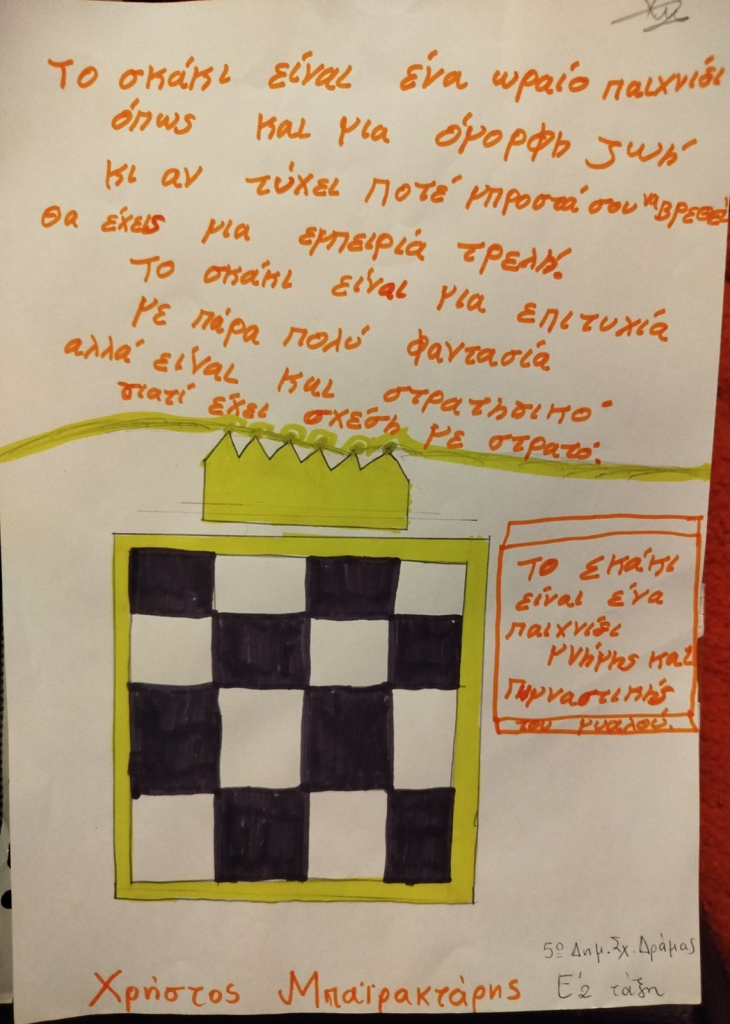 Το σκάκι είναι ένα ωραίο παιχνίδι
όπως και μια όμορφη ζωή
κι αν τύχει ποτέ μπροστά σου να βρεθεί
θα έχεις μια εμπειρία τρελή.
Το σκάκι είναι μια επιτυχία
με πάρα πολύ φαντασία
αλλά είναι και στρατηγικό
γιατί έχει σχέση με στρατό.
Το Σκάκι
είναι ένα
παιχνίδι
μνήμης και
Γυμναστικής
του μυαλού.
5º Δημ. Σχ. Δράμας
Ε'2 τάξη
Χρήστος Μπαϊρακτάρης